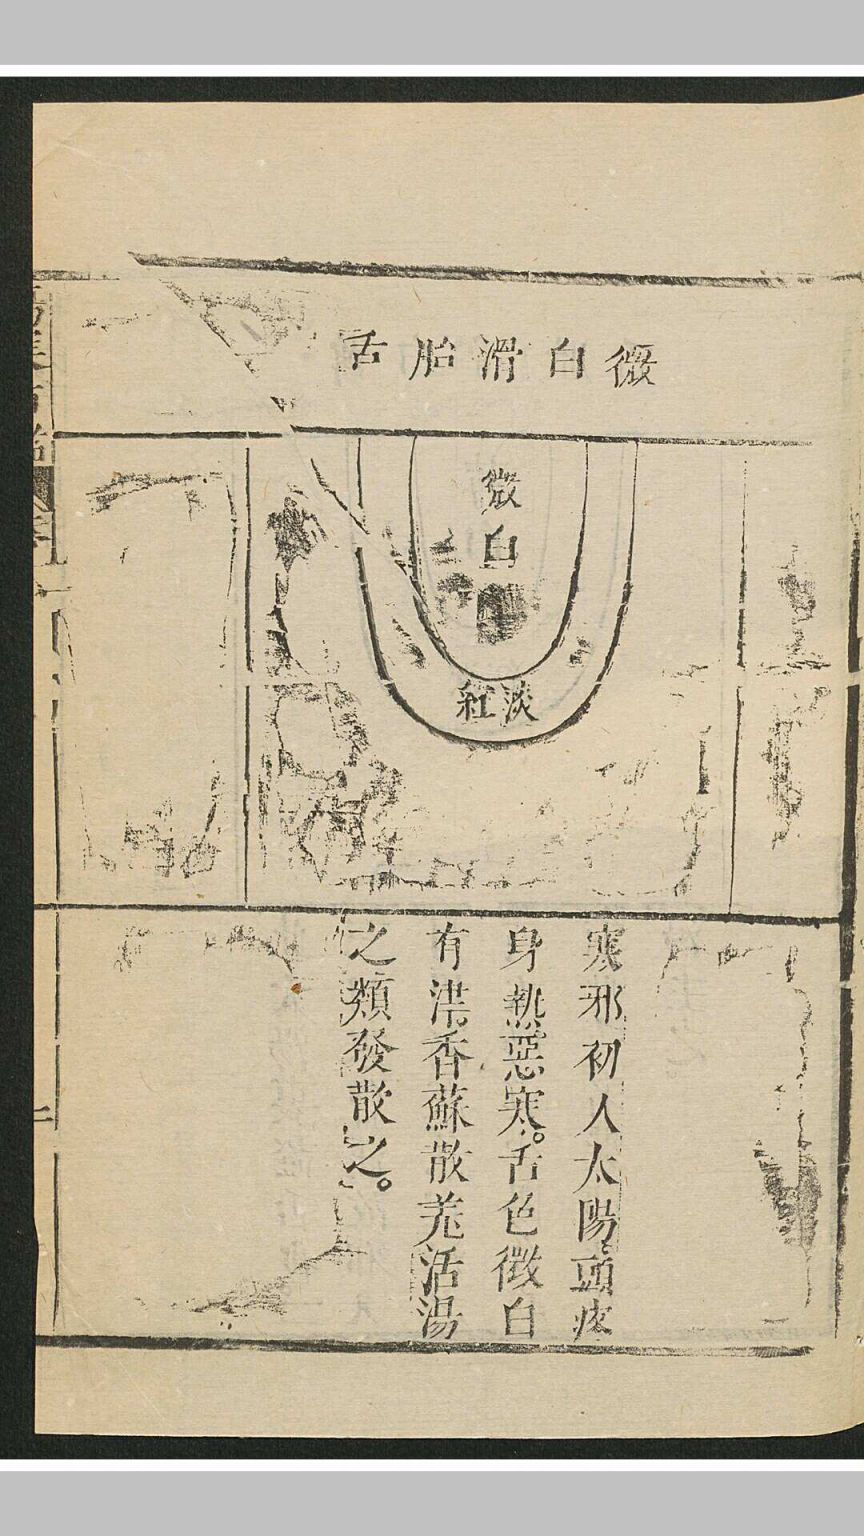 微白滑胎舌
微白
淡紅
寒邪初入太陽頭疼
身熱惡寒。舌色微白
有津。香蘇散羌活湯
之類發散之。